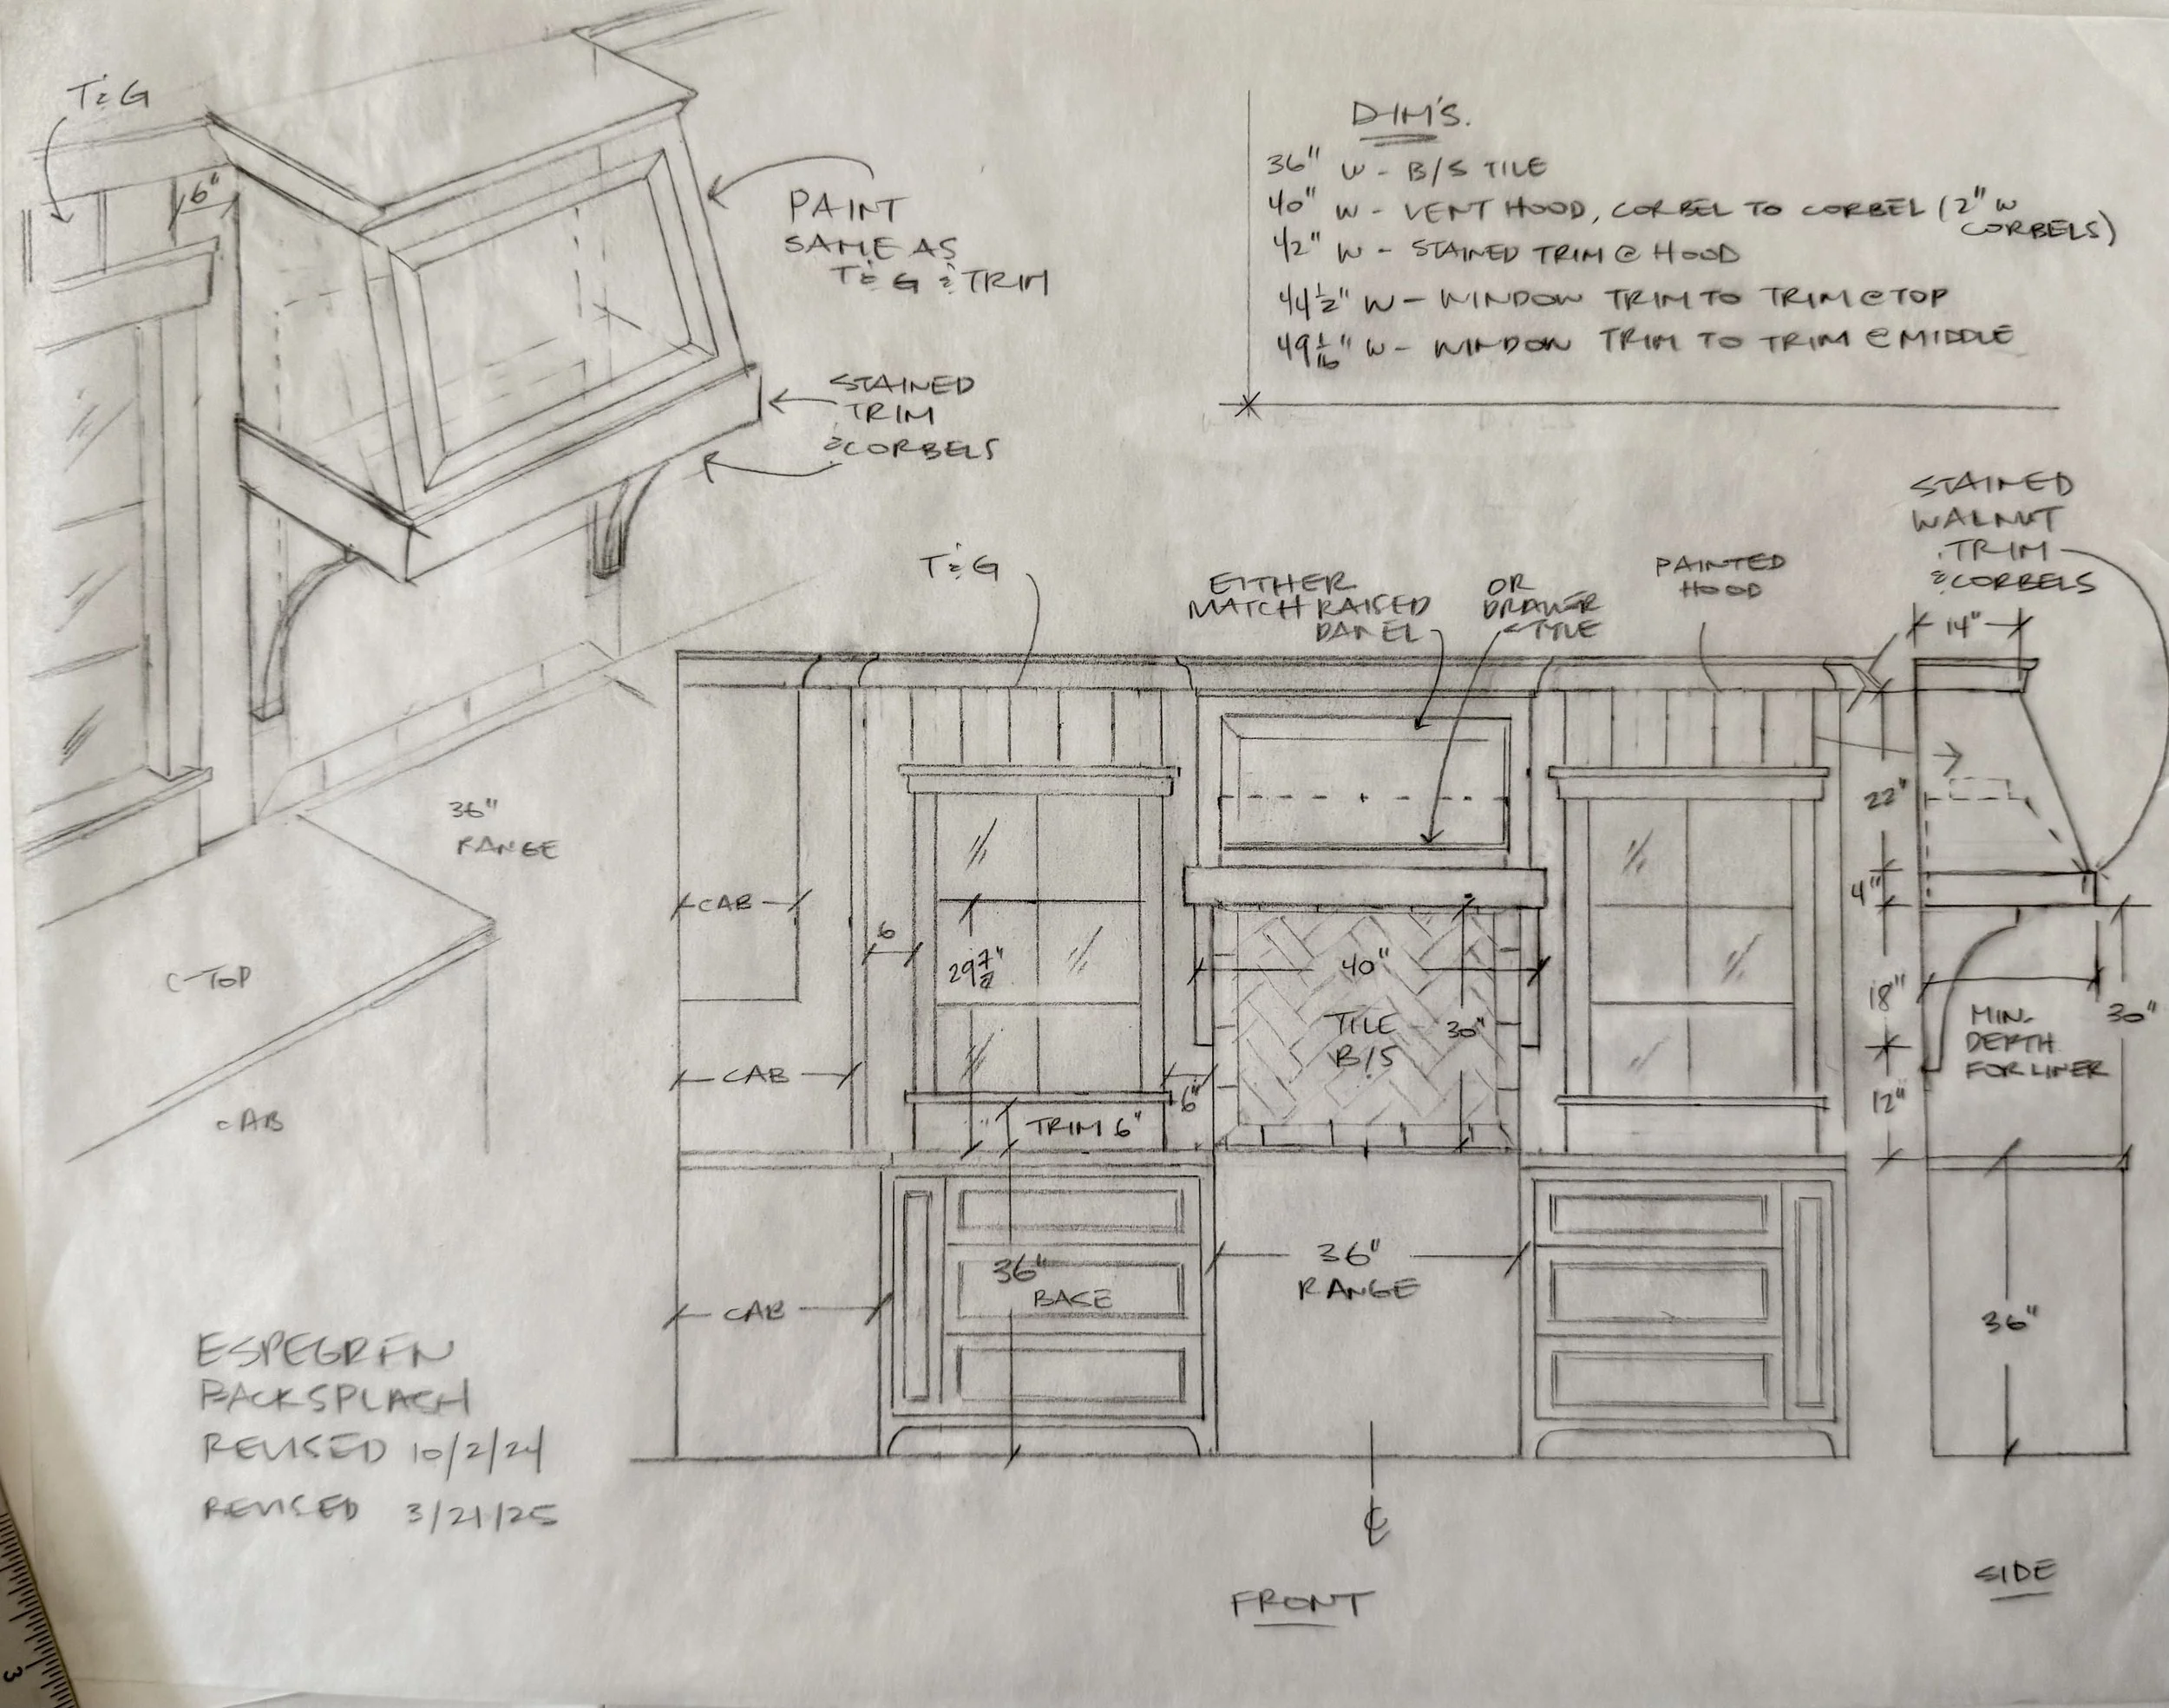 T&G
6"
PAINT
SAME AS
T&G & TRIM
STAINED
TRIM
& CORBELS
36"
RANGE
C-TOP
CAB
DIM'S.
36" W - B/S TILE
40" W - VENT HOOD, CORBEL TO CORBEL (2" W
CORBELS)
42" W - STAINED TRIM @ HOOD
44 1/2" W - WINDOW TRIM TO TRIM @ TOP
49 1/16" W - WINDOW TRIM TO TRIM @ MIDDLE
T&G
EITHER
MATCH RAISED
PANEL
OR
DRAWER
STYLE
PAINTED
HOOD
STAINED
WALNUT
TRIM
& CORBELS
14"
22"
4"
18"
12"
MIN.
DEPTH
FOR LINER
30"
36"
CAB
CAB
CAB
6
29 7/8"
TRIM 6"
6"
40"
TILE
B/S
30"
36"
BASE
36"
RANGE
ESPEGREN
BACKSPLASH
REVISED 10/2/24
REVISED 3/21/25
℄
FRONT
SIDE
3